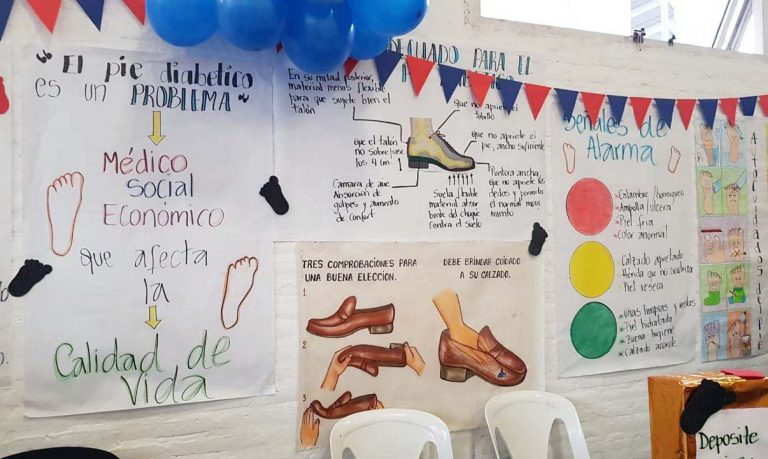 "El pie diabético
es un PROBLEMA"
Médico
Social
Económico
que afecta
la
Calidad de
Vida
PARA EL
En su mitad posterior,
material menos flexible
para que sujete bien el
talón
que no apriete el
tobillo
que el talón
no sobre pase
los 4 cm
que no apriete el
pie, ancho suficiente
Camara de aire
Absorción de
golpes y aumento
de confort
Suela flexible
material absor
bente del choque
contra el suelo
Puntera ancha,
que no apriete los
dedos y permita
el normal movi
miento
TRES COMPROBACIONES PARA
UNA BUENA ELECCION.
1
2
3
DEBE BRINDAR CUIDADO
A SU CALZADO.
Señales de
Alarma
Calambre/hormigueo
Ampolla/úlcera
Piel fría
Color anormal
Calzado apretado
Herida que no cicatriza
Piel reseca
Uñas limpias y rectas
Piel hidratada
Buena higiene
Calzado acorde
Autocuidados del Pie
Deposite